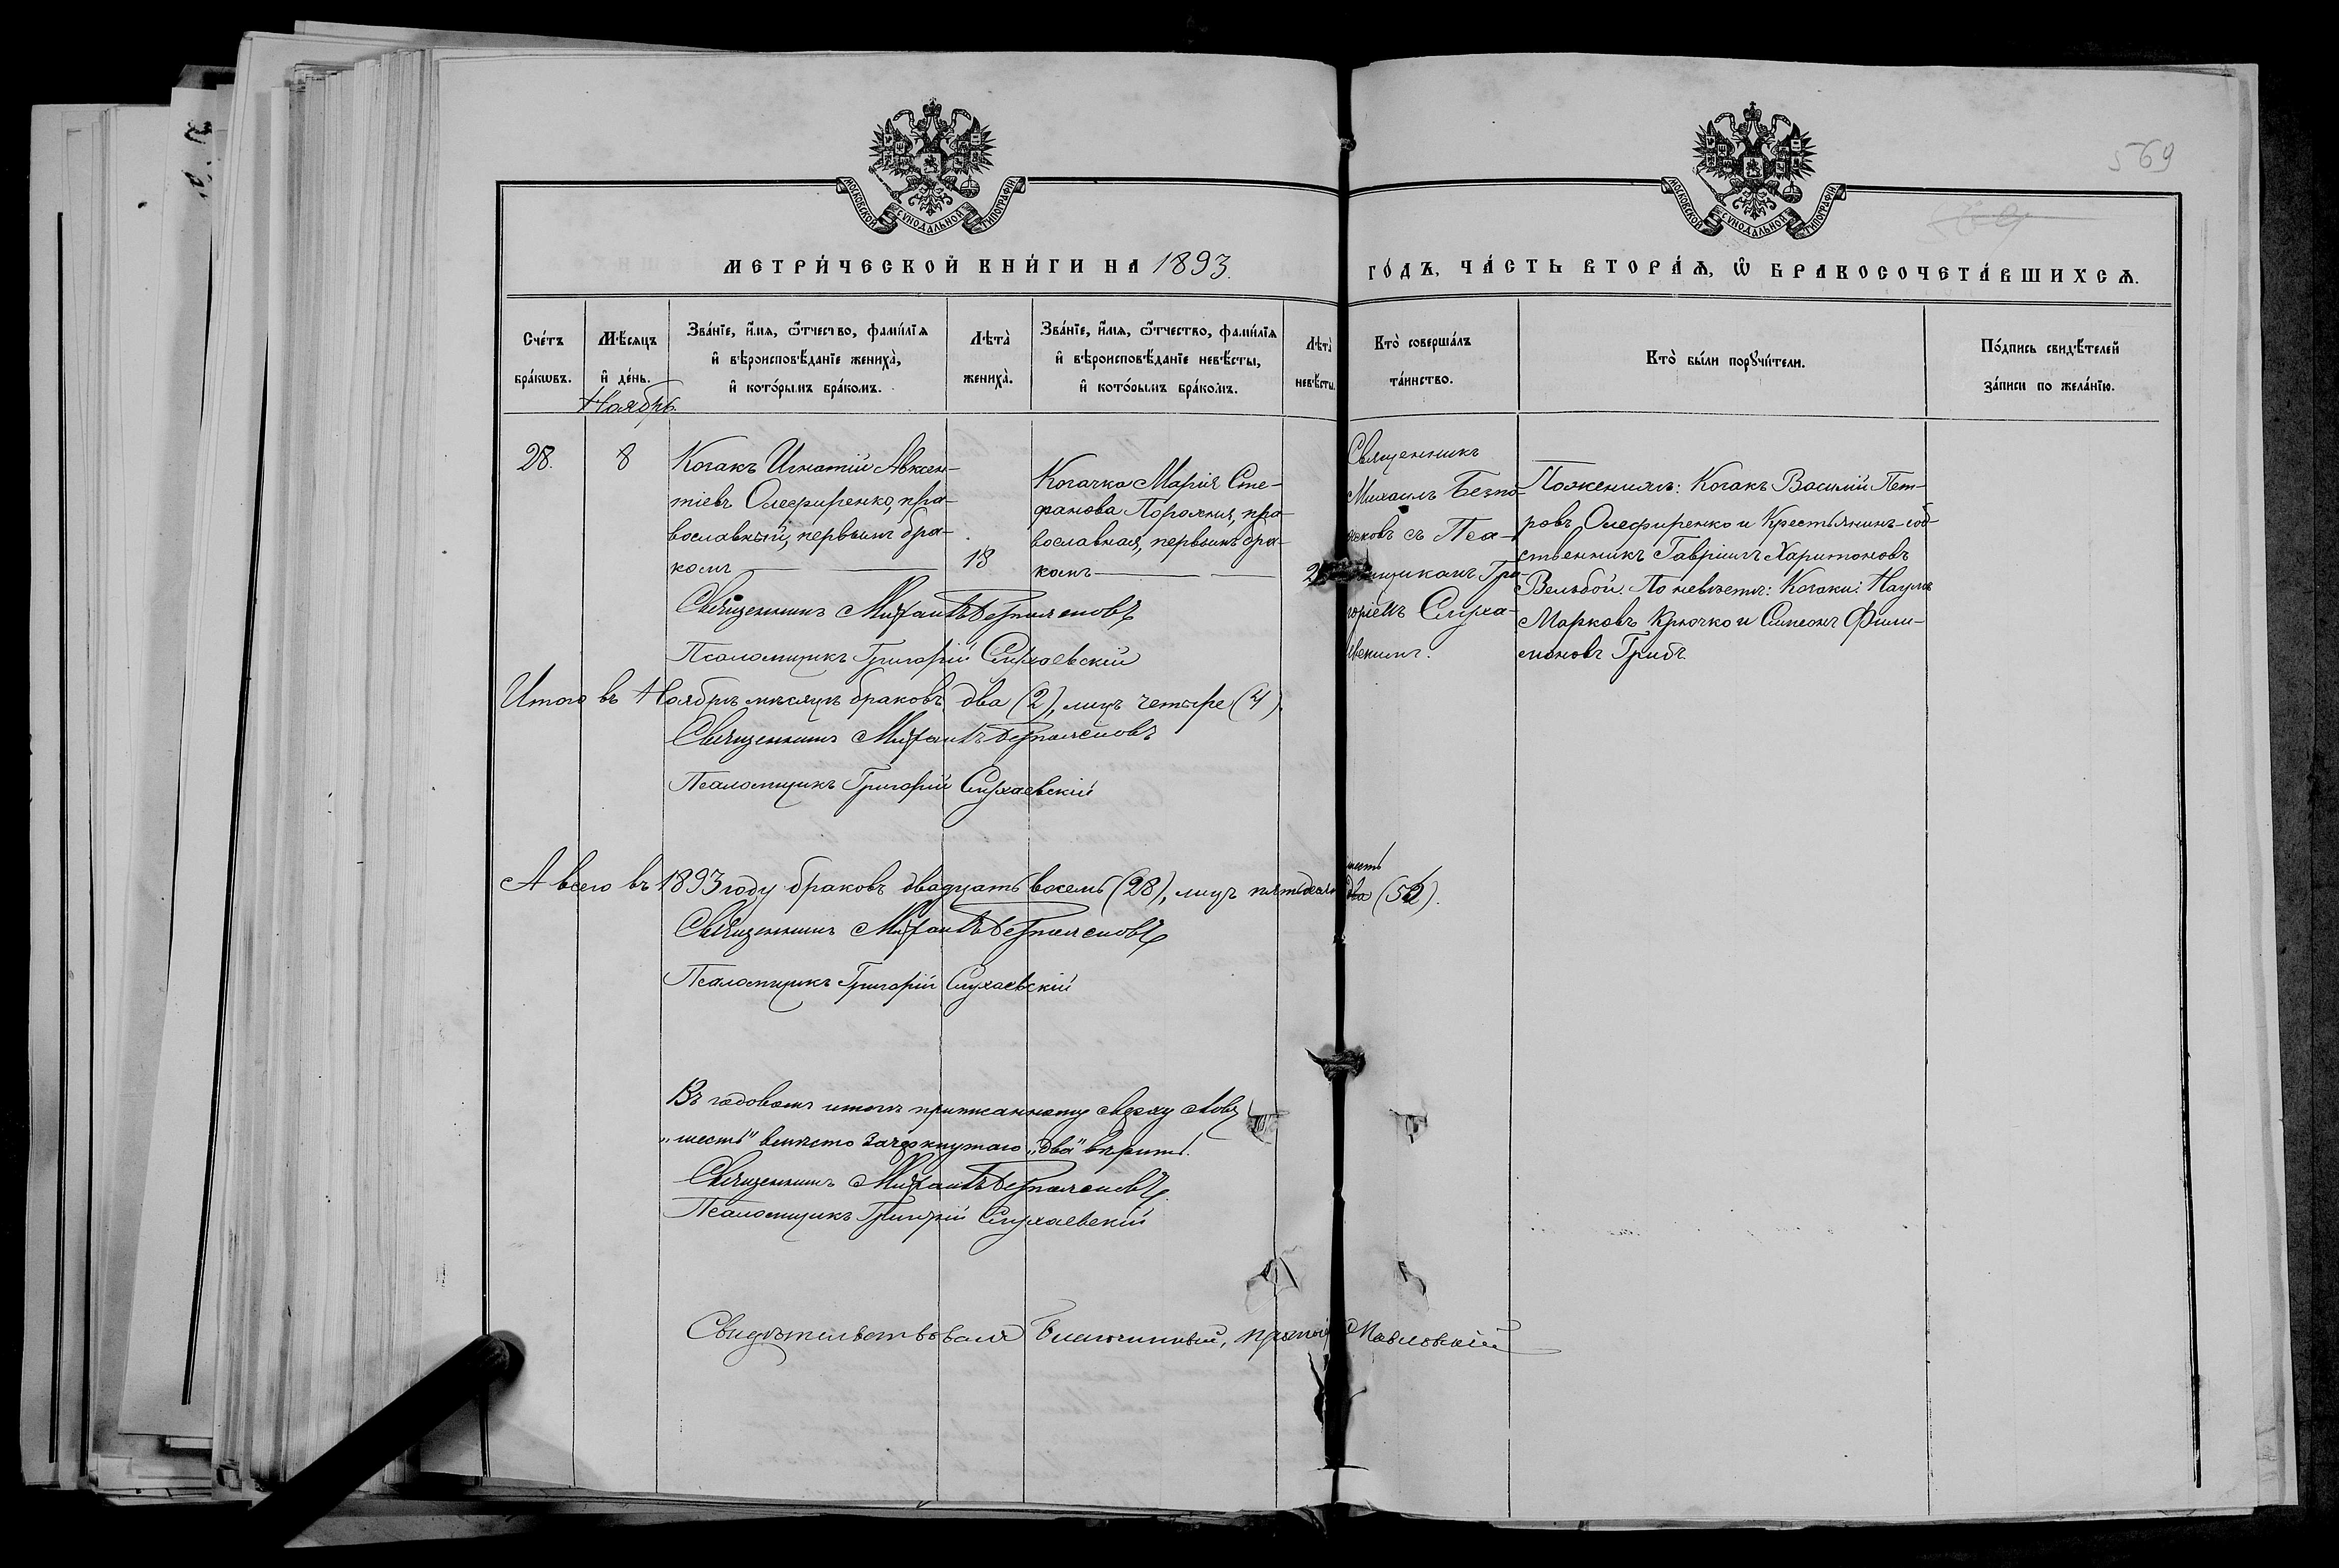 569
МОСКОВСКОЙ СѴНОДАЛЬНОЙ ТИПОГРАФІИ
МОСКОВСКОЙ СѴНОДАЛЬНОЙ ТИПОГРАФІИ
МЕТРИ́ЧЕСКОЙ КНИ́ГИ НА 1893.
ГО́ДЪ, ЧА́СТЬ ВТОРА́Ѧ, Ѽ БРАКОСОЧЕТА́ВШИХСѦ.
Сче́тъ
бра́кѡвъ.
Мѣ́сяцъ
и҆ де́нь.
Ноябрь
Зва́нїе, и҆́мя, ѻ҆́тчество, фами́лїя
и҆ вѣроисповѣ́данїе жениха̀,
и҆ кото́рымъ бра́комъ.
Лѣта̀
жениха̀.
Зва́нїе, и҆́мя, ѻ҆́тчество, фами́лїя
и҆ вѣроисповѣ́данїе невѣ́сты,
и҆ кото́рымъ бра́комъ.
Лѣта̀
невѣ́сты.
Кто̀ соверша́лъ
та́инство.
Кто̀ бы́ли порꙋчи́тели.
По́дпись свидѣ́телей
за́писи по жела́нїю.
28.
8
Козакъ Игнатій Авксен-
тіевъ Олефиренко, пра-
вославный, первымъ бра-
комъ
18
Козачка Марія Сте-
фанова Порожня, пра-
вославная, первымъ бра-
комъ
Священникъ
Михаилъ Безпо-
яковъ съ Пса-
ломщикомъ Гри-
горіемъ Слуха-
евскимъ.
По женихѣ: Козакъ Василій Пет-
ровъ Олефиренко и Крестьянинъ-соб-
ственникъ Гавріилъ Харитоновъ
Вельбой. По невѣстѣ: Козаки: Наумъ
Марковъ Крючко и Симеонъ Фили-
моновъ Грибъ.
Священникъ Михаилъ
Псаломщикъ Григорій Слухаевскій
Итого въ Ноябрѣ мѣсяцѣ браковъ два (2), лицъ четыре (4).
Священникъ Михаилъ
Псаломщикъ Григорій Слухаевскій
шесть
А всего въ 1893 году браковъ двадцать восемь (28), лицъ пятьдесят два
Священникъ Михаилъ
Псаломщикъ Григорій Слухаевскій
Въ годовомъ итогѣ приписанному сверху слову
„шесть" вмѣсто зачеркнутаго „два" вѣрить.
Священникъ Михаилъ
Псаломщикъ Григорій Слухаевскій
Свидѣтельствовалъ Благочинный,